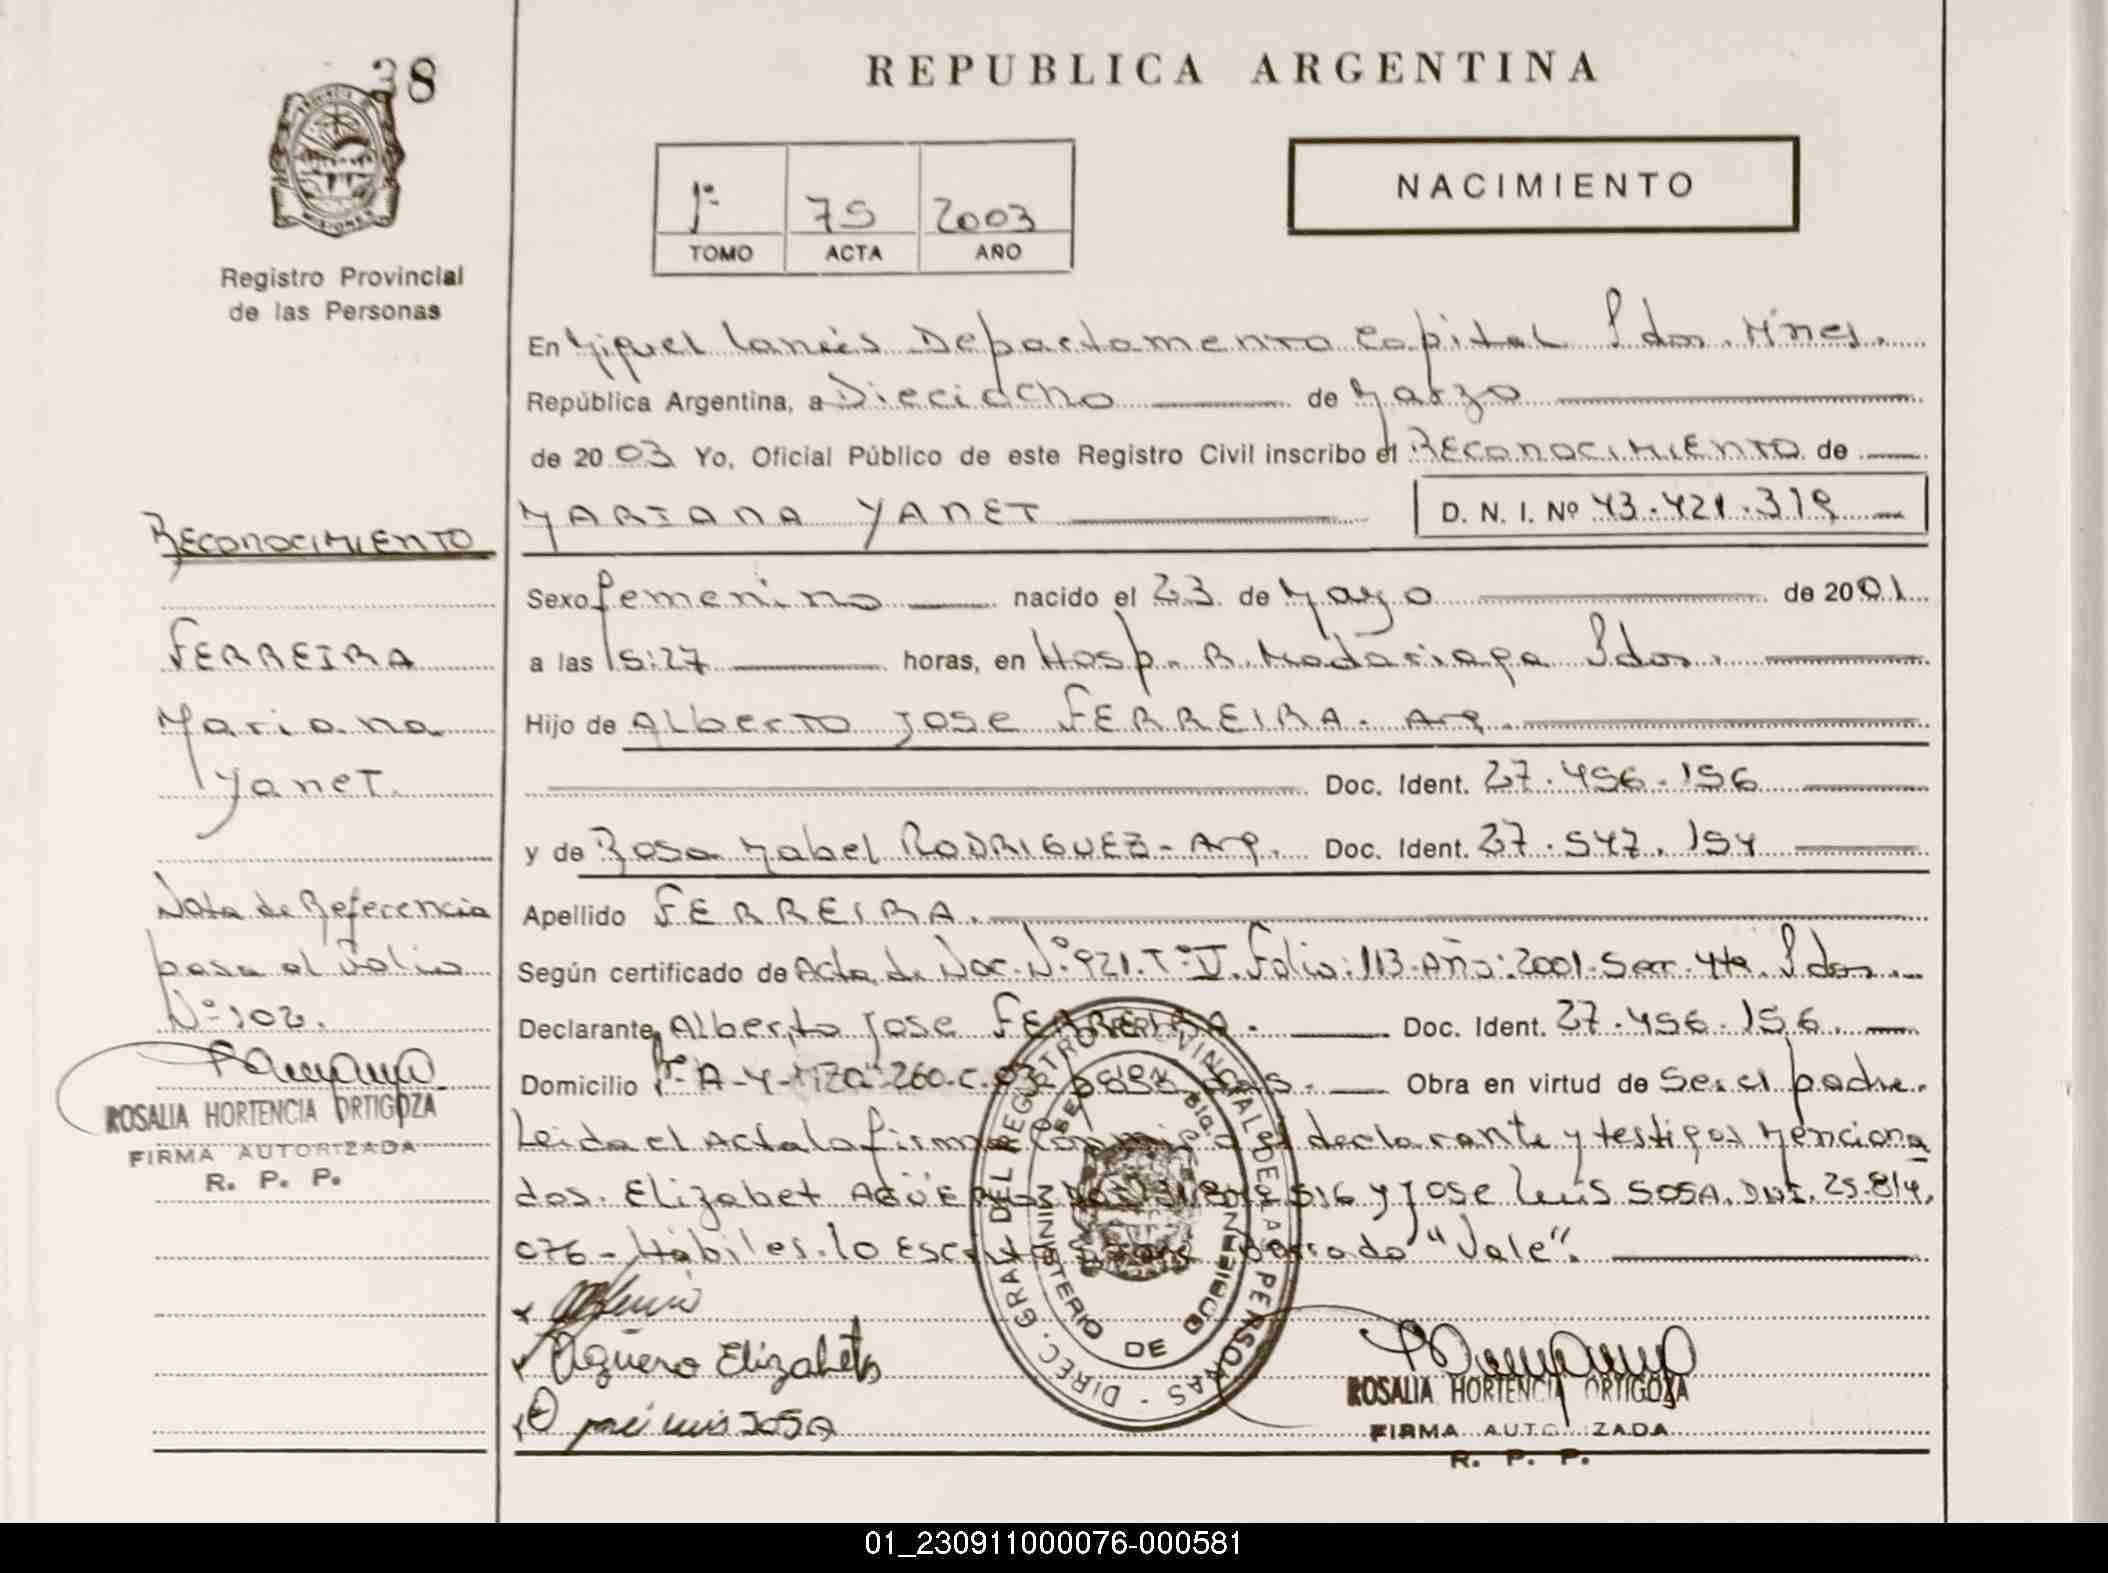 38
REPUBLICA ARGENTINA
NACIMIENTO
1º 75 2003
TOMO ACTA AÑO
Registro Provincial
de las Personas
En Miguel Lanús Departamento Capital Pdas. Mnes.
República Argentina, a Dieciocho de Marzo
de 2003 Yo, Oficial Público de este Registro Civil inscribo el RECONOCIMIENTO de
MARIANA YANET D. N. I. Nº 43.421.319
Sexo femenino nacido el 23 de Mayo de 2001
a las 15:27 horas, en Hosp. R. Madariaga Pdas.
Hijo de Alberto Jose FERREIRA. Arg.
Doc. Ident. 27.456.156
y de Rosa Mabel RODRIGUEZ - Arg. Doc. Ident. 27.547.154
Apellido FERREIRA.
Según certificado de Acta de Nac. Nº 921. Tº V. Folio: 113. Año: 2001. Secc. 4ta. Pdas.
Declarante Alberto Jose FERREIRA. Doc. Ident. 27.456.156.
Domicilio A-4- Mza 260-C. Pdas. Obra en virtud de Ser el padre.
Leida el Acta la firma conmigo el declarante y testigos Menciona
dos. Elizabet AGÜERO y Jose Luis SOSA. DNI. 25.814.
076 - Hábiles. lo Esc Borrado "Vale".
Agüero Elizabeth
José Luis SOSA
ROSALIA HORTENCIA ORTIGOZA
FIRMA AUTORIZADA
R. P. P.
DIREC. GRAL. DEL REGISTRO PROVINCIAL DE LAS PERSONAS
MINISTERIO DE GOBIERNO
RECONOCIMIENTO
FERREIRA
Mariana
Yanet.
Nota de Referencia
pasa al Folio
Nº 102.
ROSALIA HORTENCIA ORTIGOZA
FIRMA AUTORIZADA
R. P. P.
01_230911000076-000581